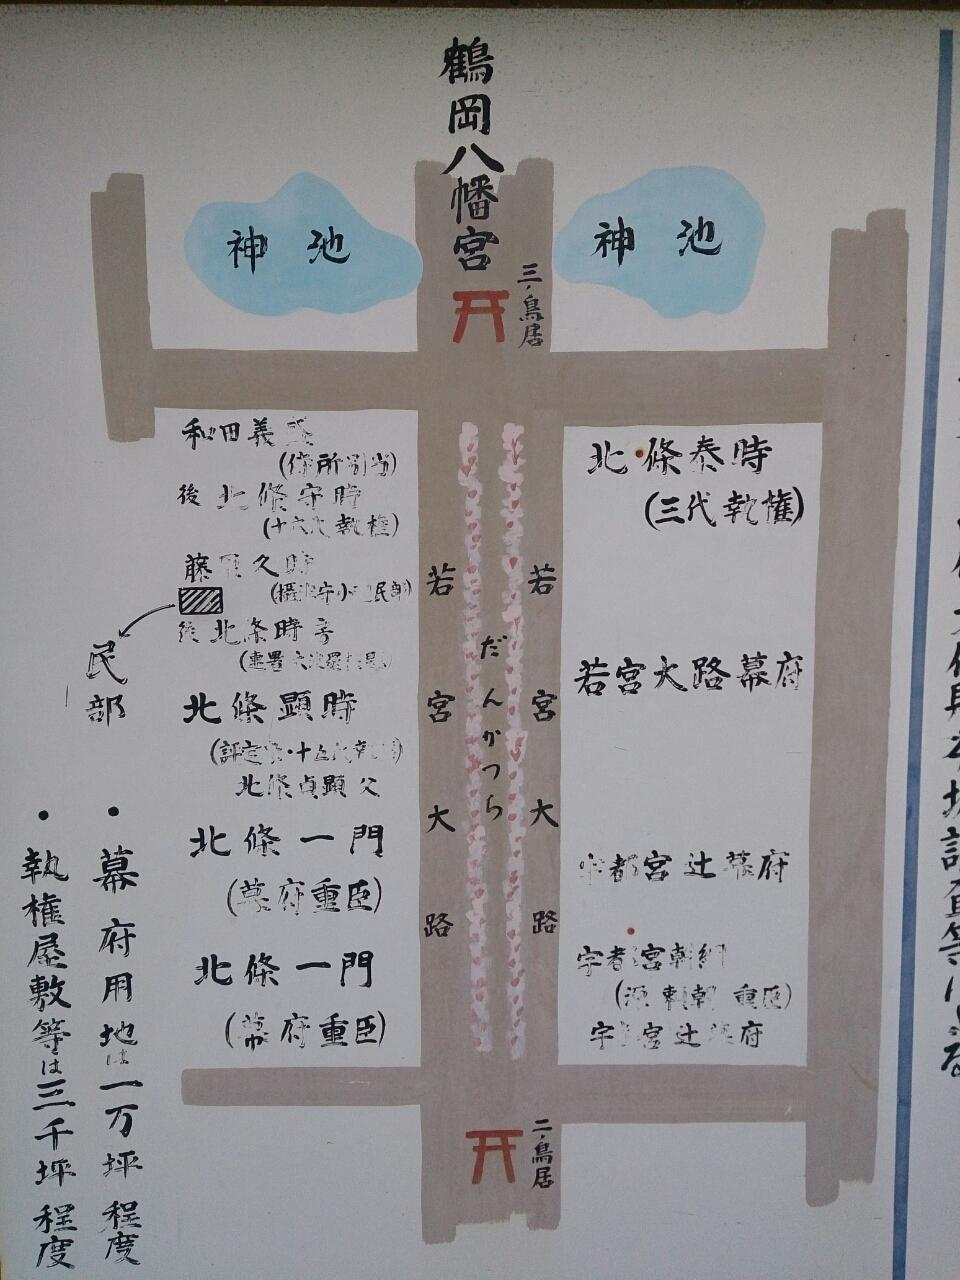 鶴岡八幡宮
神池
神池
三ノ鳥居
和田義盛
後 北條守時
藤原久時
後 北條時
北條顕時
北條貞顕父
北條一門
(幕府重臣)
北條一門
(幕府重臣)
民部
若宮大路
だんかつら
若宮大路
北條泰時
(三代執権)
若宮大路幕府
宇都宮辻幕府
宇都宮朝綱
(源頼朝 重臣)
宇都宮辻幕府
二ノ鳥居
・幕府用地は一万坪程度
・執権屋敷等は三千坪程度